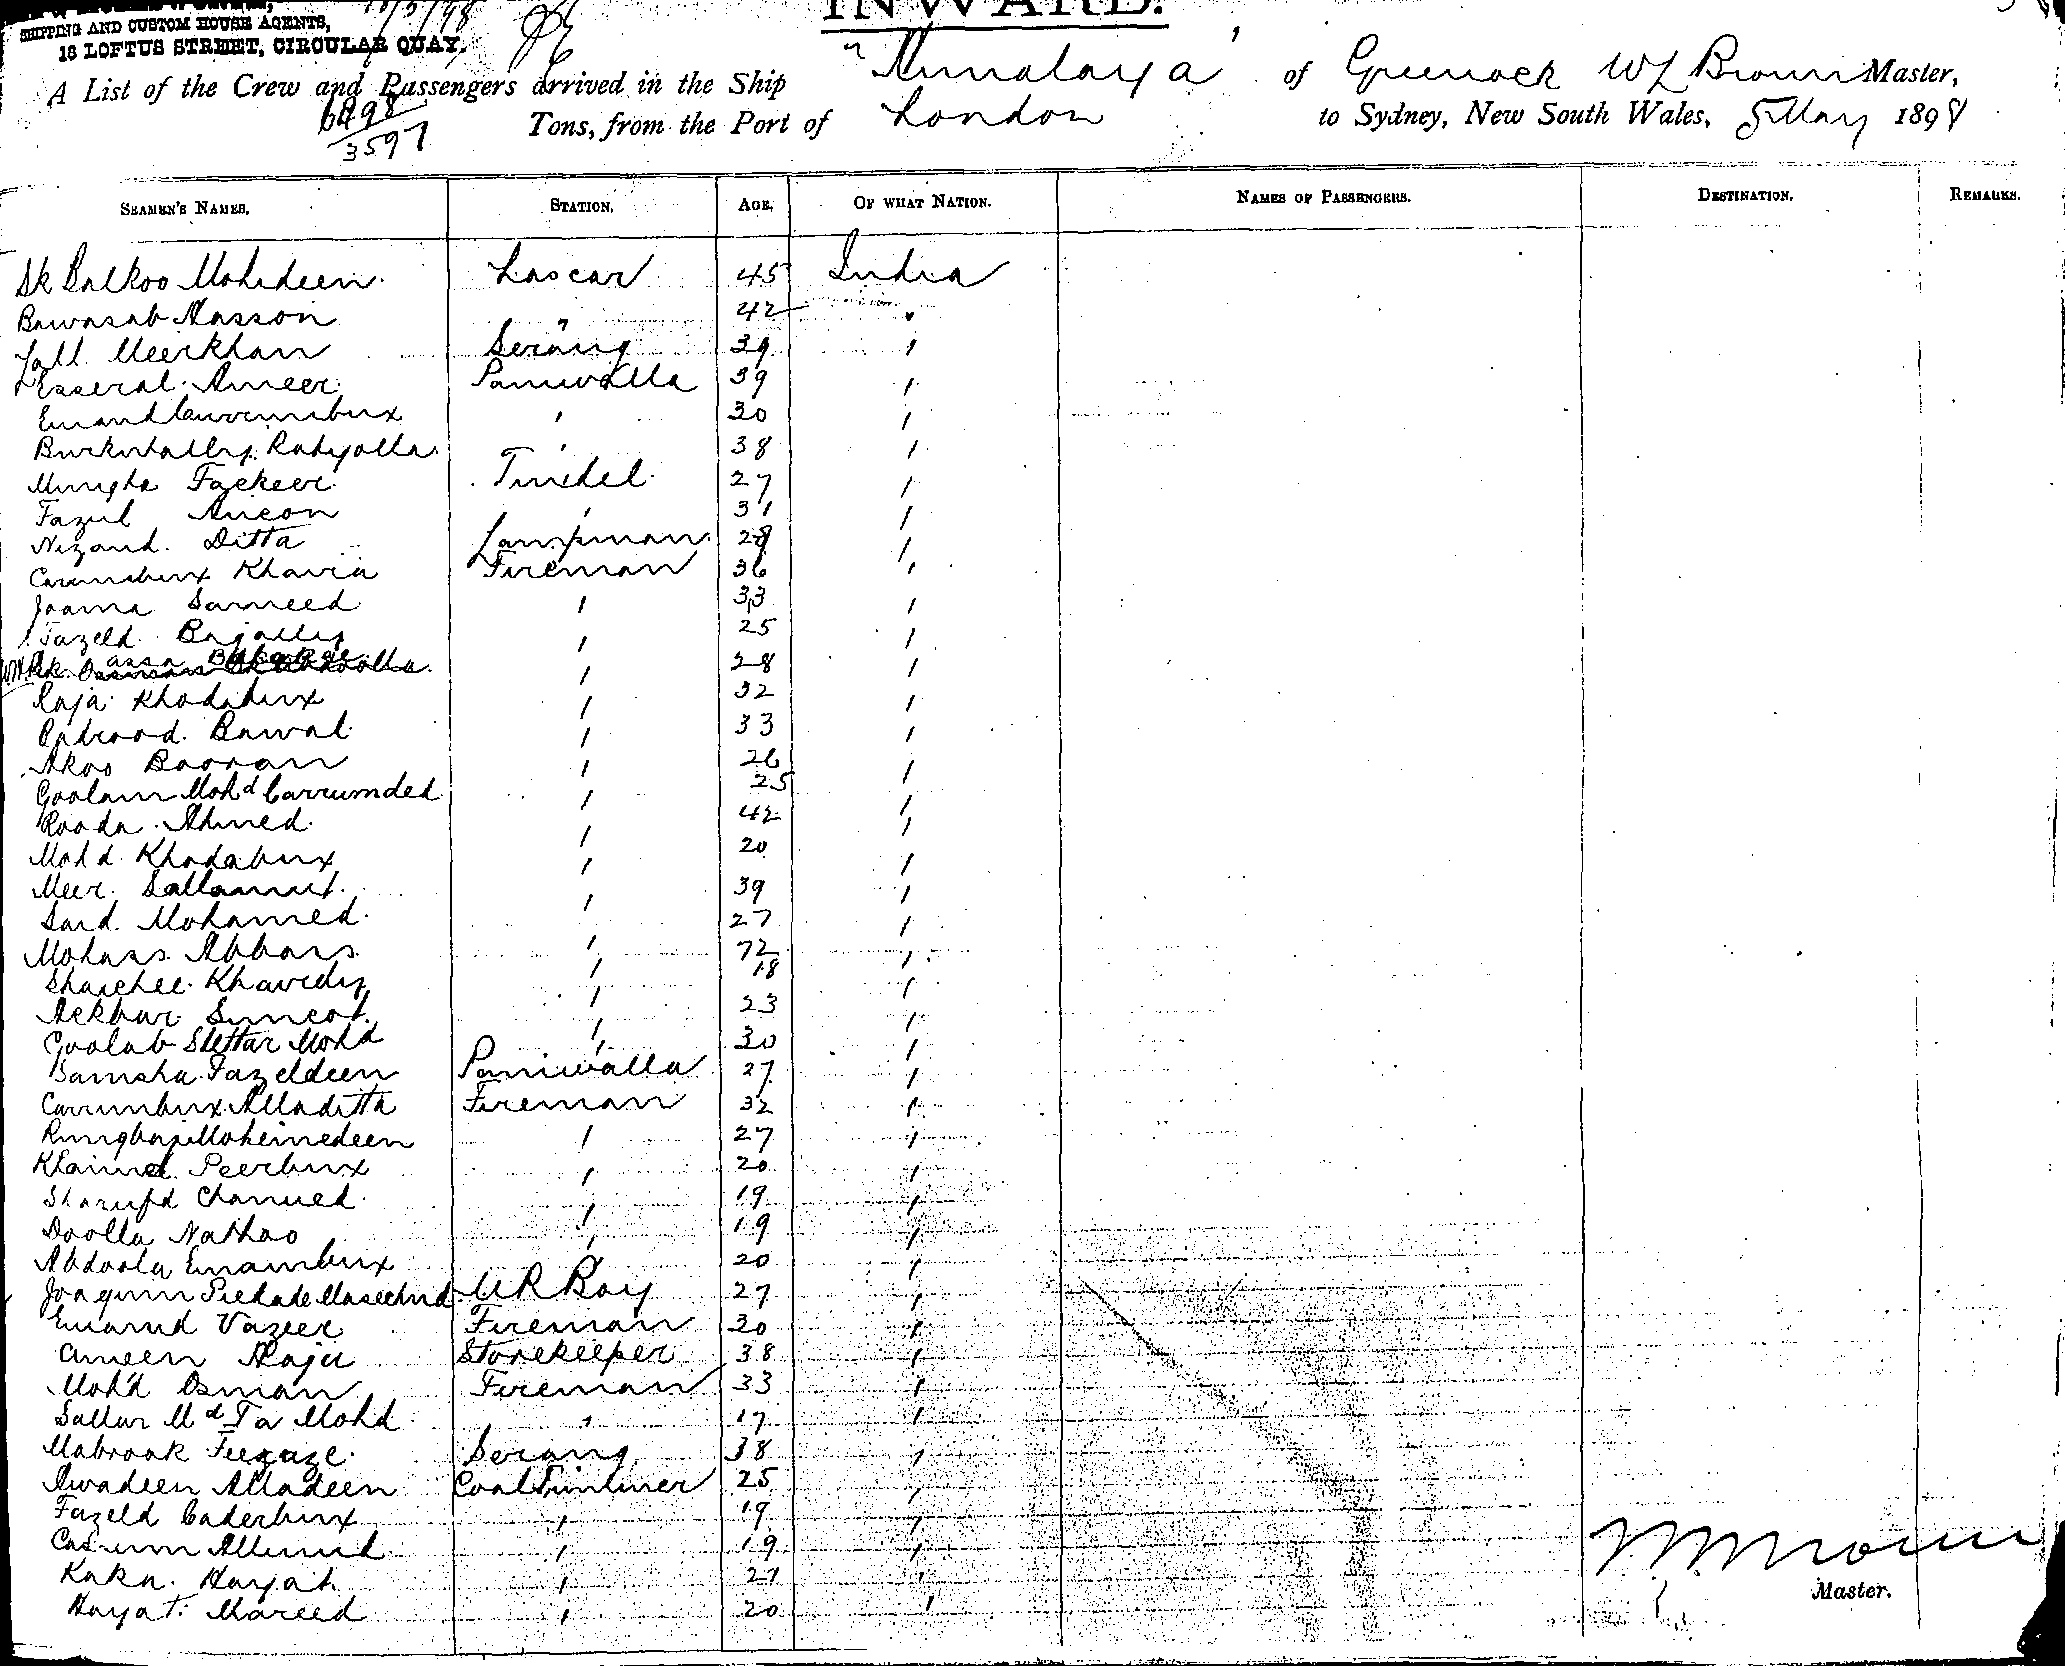 SHIPPING AND CUSTOM HOUSE AGENTS,
18 LOFTUS STREET, CIRCULAR QUAY.
INWARD.
A List of the Crew and Passengers arrived in the Ship "Himalaya" of Greenock W L Brown Master,
6898
3597
Tons, from the Port of London to Sydney, New South Wales, 5 May 1898
SEAMEN'S NAMES. STATION. AGE. OF WHAT NATION. NAMES OF PASSENGERS. DESTINATION. REMARKS.
Sk Balkoo Mohideen Lascar 45 India
Bawasab Hasson " 42 "
Lall Meerkhan Serang 39 "
Esseral Ameer Paniwalla 39 "
Emamd Currumbux " 30 "
Burkutally Rahyolla " 38 "
Mungha Fackeer Tindel 27 "
Fazul " 31 "
Nizamd. Ditta Lampman 28 "
Carumbux Khavia Fireman 36 "
Jooma Sameed " 33 "
Fazeld Bagally " 25 "
" 28 "
Raja Khodabux " 32 "
Bawal " 33 "
Akoo Booran " 26 "
Goolam Mohd Carrumded " 25 "
Rooda Ahmed " 42 "
Mohd. Khodabux " 20 "
Meer Sallamut " 39 "
Said Mohamed " 27 "
Abbars " 72 "
Khavedy " 18 "
Ackbar " 23 "
Goolab Slettar Mohd " 30 "
Bamsha Fazeldeen Paniwalla 27 "
Carrumbux Alladitta Fireman 32 "
Moheinedeen " 27 "
Peerbux " 20 "
Sharufd Chamed " 19 "
Doolla Nathoo " 19 "
Abdoola Emambux " 20 "
Joaquim Piedade U R Boy 27 "
Emamd Vazeer Fireman 30 "
Ameen Raja Storekeeper 38 "
Moh'd Osman Fireman 33 "
Sattar Md Ta Mohd " 17 "
Mabrook Feeraze Serang 38 "
Awadeen Alladeen Coal Trimmer 25 "
Fazeld Caderbux " 19 "
Casum " 19 "
Kaka Hayat " 27 "
Hayat Mareed " 20 "
Master.